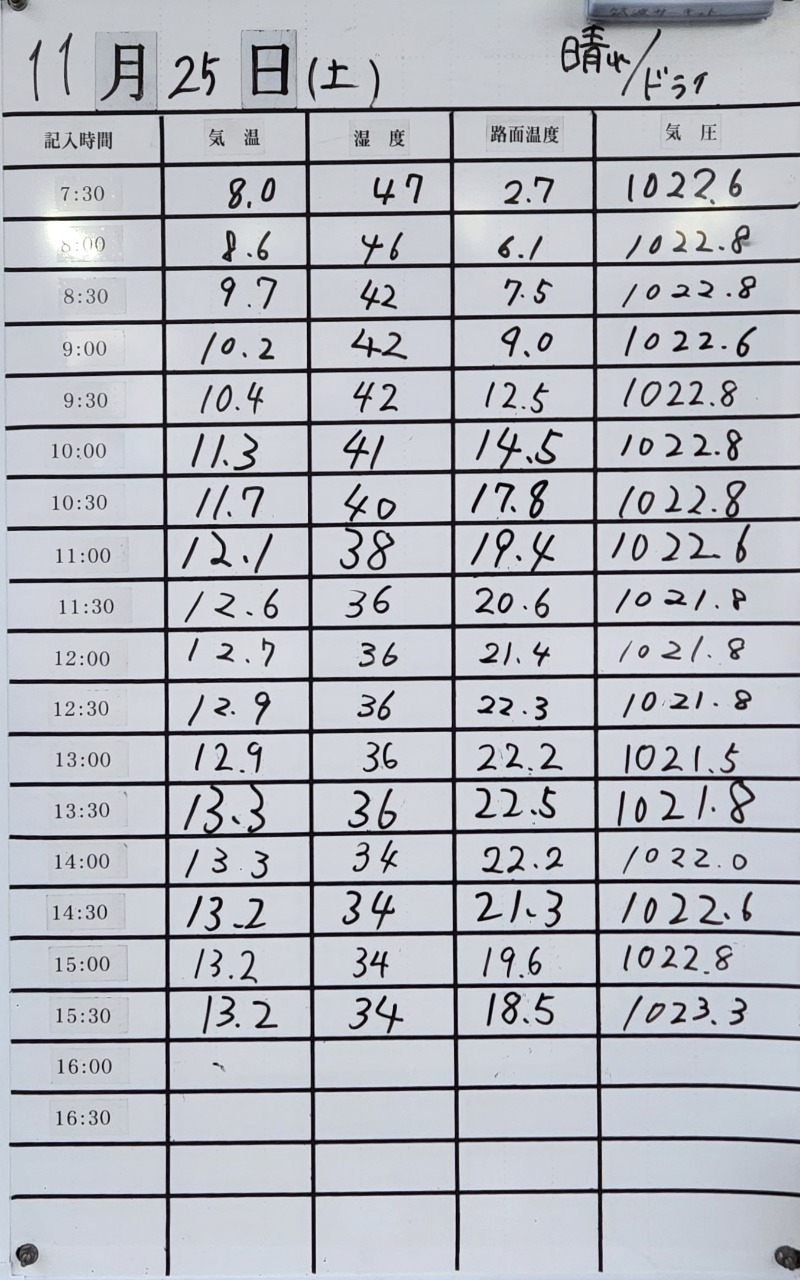 11月25日(土) 晴れ/ドライ
記入時間 気温 湿度 路面温度 気圧
7:30 8.0 47 2.7 1022.6
8:00 8.6 46 6.1 1022.8
8:30 9.7 42 7.5 1022.8
9:00 10.2 42 9.0 1022.6
9:30 10.4 42 12.5 1022.8
10:00 11.3 41 14.5 1022.8
10:30 11.7 40 17.8 1022.8
11:00 12.1 38 19.4 1022.6
11:30 12.6 36 20.6 1021.8
12:00 12.7 36 21.4 1021.8
12:30 12.9 36 22.3 1021.8
13:00 12.9 36 22.2 1021.5
13:30 13.3 36 22.5 1021.8
14:00 13.3 34 22.2 1022.0
14:30 13.2 34 21.3 1022.6
15:00 13.2 34 19.6 1022.8
15:30 13.2 34 18.5 1023.3
16:00
16:30